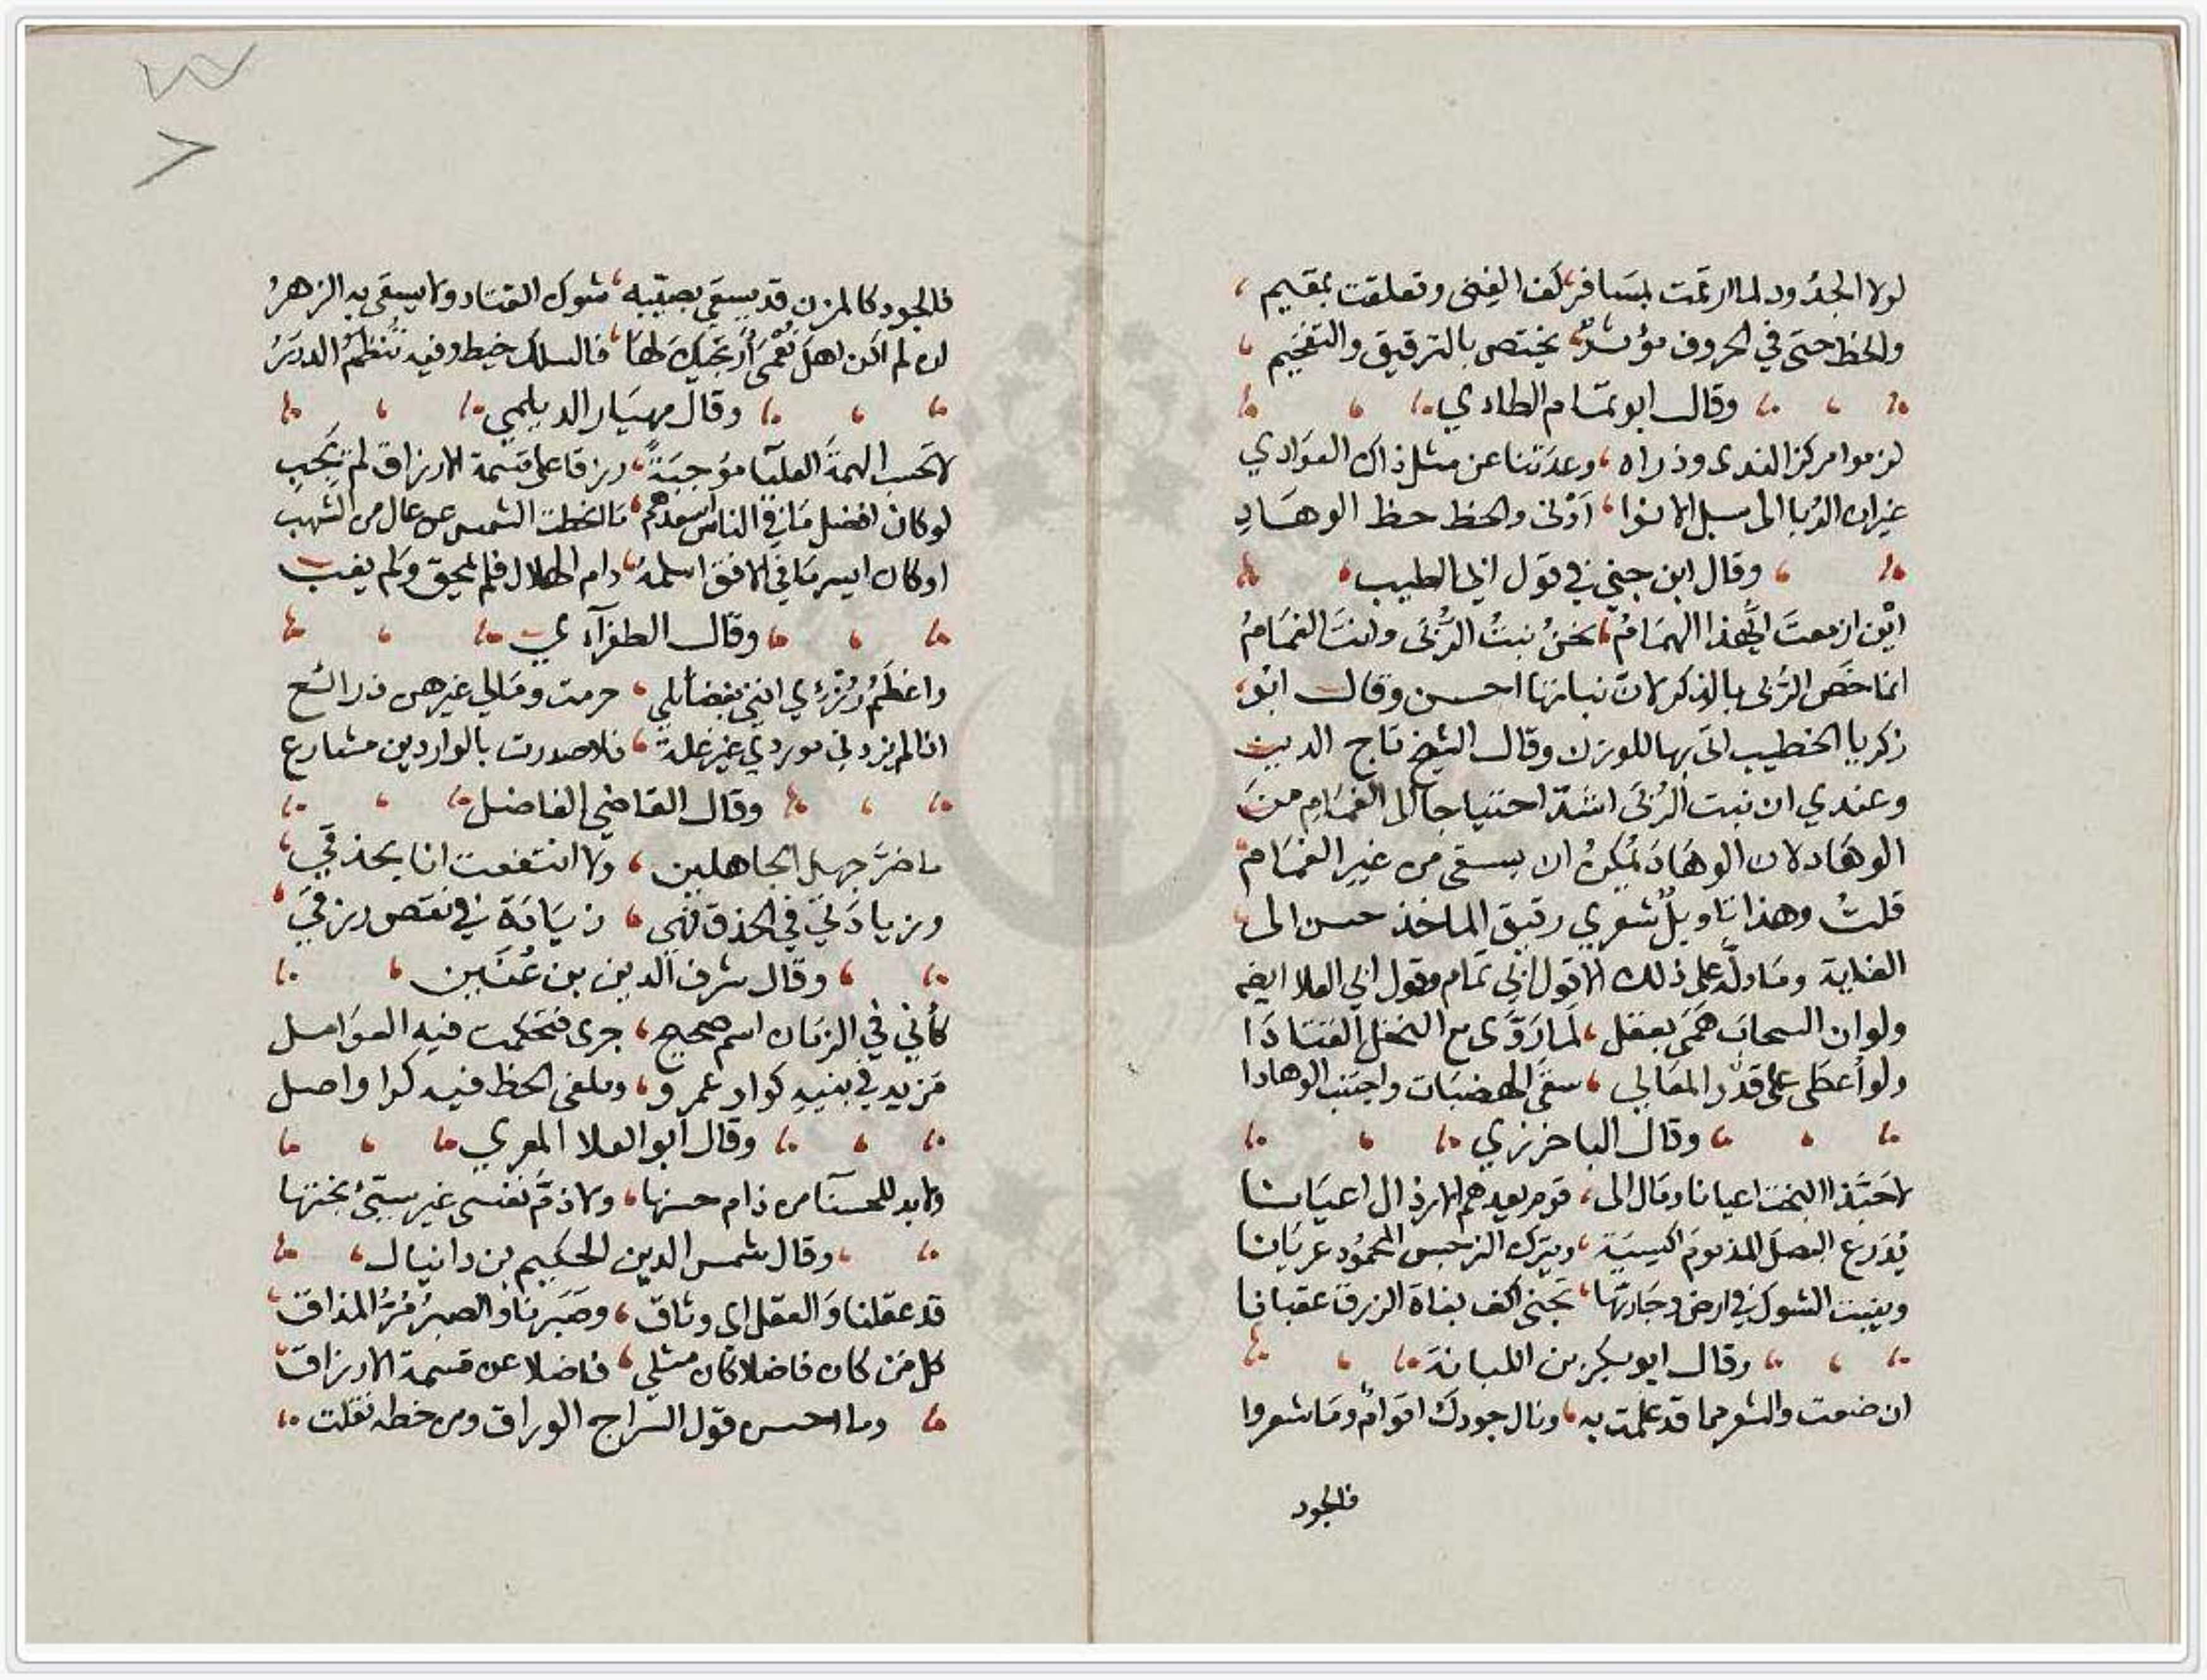 لولا الجدود لما ارتمت بمسافر كف الغنى وتعلقت بمقيم
والحظ حتى في الحروف مؤثر يختص بالترقيق والتفخيم
وقال ابو تمام الطاءي
لزموا مركز الندى وذراه وعدتنا عن مثل ذاك العوادي
غير ان الربا الى سبل الانوا ادنى والحظ حظ الوهاد
وقال ابن جني في قول ابي الطيب
اين ازمعت ايهذا الهمام نحن نبت الربى وانت الغمام
انما خص الربى بالذكر لان نباتها احسن وقال ابو
زكريا الخطيب اتى بها للوزن وقال الشيخ تاج الدين
وعندي ان نبت الربى اشد احتياجا الى الغمام من
الوهاد لان الوهاد يمكن ان يسقى من غير الغمام
قلت وهذا تاويل شعري رقيق الماخذ حسن الى
الغاية وما دل على ذلك الا قول ابي تمام وقول ابي العلا ايضا
ولو ان السحاب همى بعقل لما روى مع النخل القتادا
ولو اعطى على قدر المعالي سقى الهضبات واجتنب الوهادا
وقال الباخرزي
لا حبذا البخت اعيانا ومال الى قوم يعدهم الارذال اعيانا
يودرع البصل المذموم اكيسية ويترك النرجس المحمود عريانا
وينبت الشوك في ارض وجارتها تجنى اكف بغاة الرزق عقيانا
وقال ابو بكر بن اللبانة
ان ضعت والشعر مما قد علمت به ونال جودك اقوام وما شعروا
فالجود
فالجود كالمزن قد يسقي بصيبه شوك القتاد ولا يسقى به الزهر
ان لم اكن اهل نعمى ارتجيك لها فالسلك خيط وفيه تنظم الدرر
وقال مهيار الديلمي
لا تحسب الهمة العليا موجبة رزقا على قسمة الارزاق لم يجب
لو كان افضل ما في الناس اسعدهم ما انحطت الشمس عن عال من الشهب
او كان ايسر ما في الافق اسلمه دام الهلال فلم يمحق ولم يغب
وقال الطغرآءي
واعظم رزءي انني بفضائلي حرمت ومالي غيرهن ذرائع
اذا لم يزدني موردي غير غلة فلا صدرت بالواردين مشارع
وقال القاضي الفاضل
ما ضر جهل الجاهلين ولا انتفعت انا بحذقي
وزيادتي في الحذق فهي زيادة في نقص رزقي
وقال شرف الدين بن عنين
كأني في الزمان اسم صحيح جرى فتحكمت فيه العوامل
مزيد في بنيه كواو عمرو وملغى الحظ فيه كرا واصل
وقال ابو العلا المعري
ولا بد للحسنآ من ذام حسنها ولا ذم نفسى غير سيئ بختها
وقال شمس الدين الحكيم بن دانيال
قد عقلنا والعقل اي وثاق وصبرنا والصبر مر المذاق
كل من كان فاضلا كان مثلي فاضلا عن قسمة الارزاق
وما احسن قول السراج الوراق ومن خطه نقلت